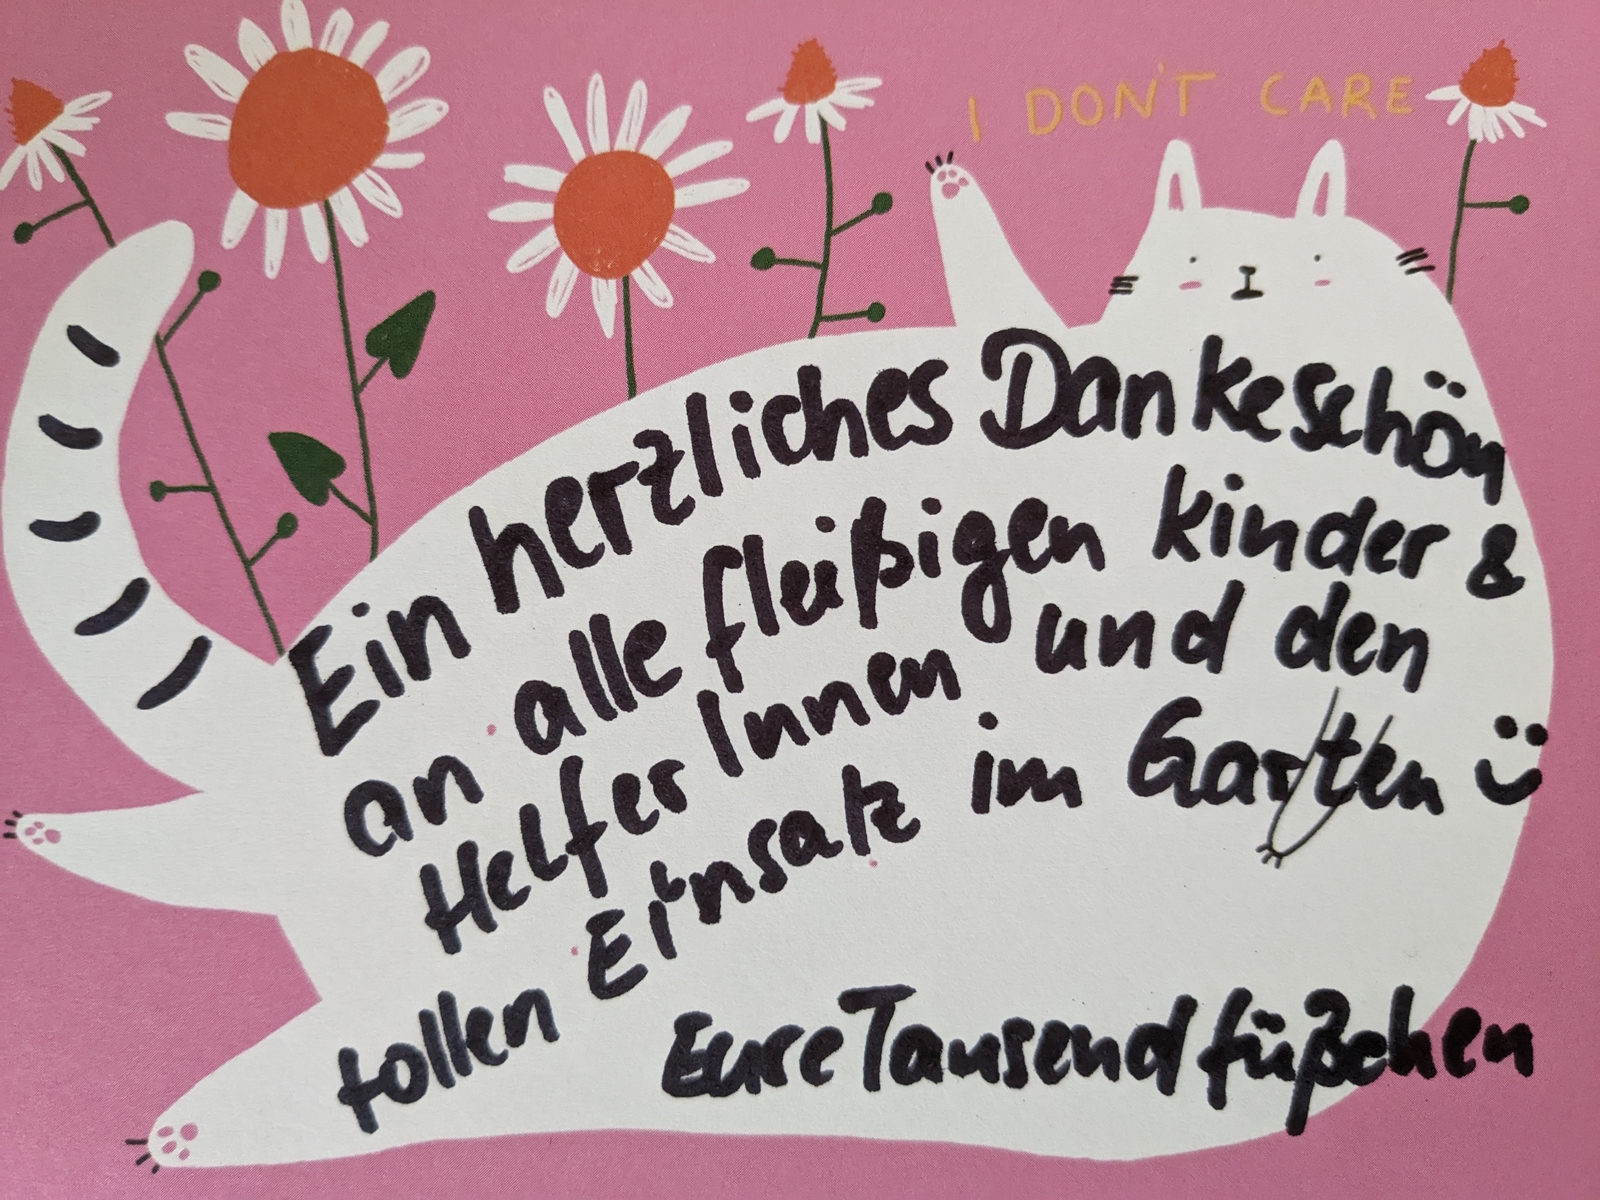 I DON'T CARE
Ein herzliches Dankeschön
an alle fleißigen kinder &
Helfer Innen und den
tollen Einsatz im Garten :)
Eure Tausendfüßchen